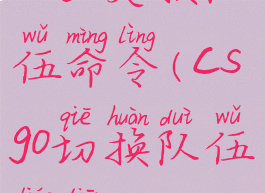 wǔ mìng lìng
伍命令(CS
qiē huàn duì wǔ
90切换队伍